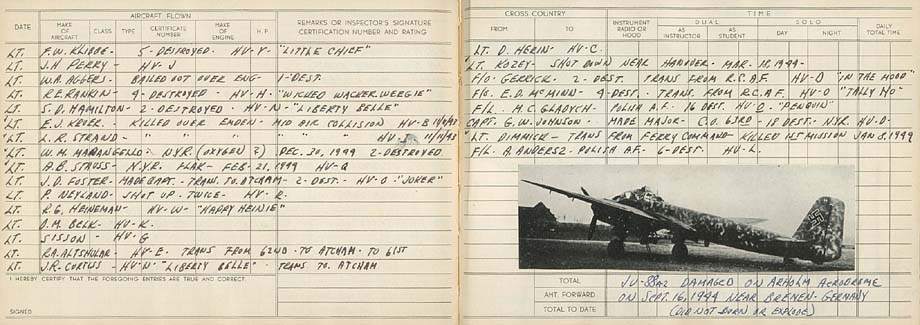 AIRCRAFT FLOWN
DATE
MAKE OF AIRCRAFT
CLASS
TYPE
CERTIFICATE NUMBER
MAKE OF ENGINE
H.P.
REMARKS OR INSPECTOR'S SIGNATURE
CERTIFICATION NUMBER AND RATING
LT. F.W. KLIBBE - 5 - DESTROYED. HV-Y- "LITTLE CHIEF"
LT. J.H PERRY - HV-J
LT. W.A. AGGERS - BAILED OUT OVER ENG - 1-DEST.
LT. R.E. RANKIN - 9-DESTROYED - HV-H - "WICKED WACKER WEEGIE"
LT. S.D. HAMILTON - 2-DESTROYED - HV-N- "LIBERTY BELLE"
LT. E.J. KRUER - KILLED OVER EMDEN - MID AIR COLLISION HV-B
LT. L.R. STRAND - " " " " " HV-
LT. W.M. MARANGELLO - N.Y.R. (OXYGEN ?) . DEC. 30, 1944 2-DESTROYED
LT. A.B. STAUSS - N.Y.R. FLAK - FEB-21, 1944 HV-Q
LT. J.D. FOSTER - MADE CAPT. - TRANS. TO ATCHAM - 2-DEST. - HV-O "JOKER"
LT. P. NEYLAND - SHOT UP - TWICE - HV-R
LT. R.G. HEINEMAN - HV-W- "HAPPY HEINIE"
LT. D.M. BELK - HV-K.
LT. SISSON HV-G
LT. RA. ALTSHULAR - HV-E. TRANS FROM 62ND - TO ATCHAM - TO 61ST
LT. J.R. CURTUS - HV-N "LIBERTY BELLE" . TRANS TO. ATCHAM
I HEREBY CERTIFY THAT THE FOREGOING ENTRIES ARE TRUE AND CORRECT.
SIGNED
CROSS COUNTRY
FROM
TO
INSTRUMENT RADIO OR HOOD
TIME
DUAL
SOLO
AS INSTRUCTOR
AS STUDENT
DAY
NIGHT
DAILY TOTAL TIME
LT. D. HERIN HV-C.
LT. KOZEY - SHOT DOWN NEAR HANOVER - MAR. 15, 1944 -
F/O. GERRICK. - 2-DEST. TRANS FROM R.C.A.F. HV-O "IN THE MOOD"
F/S. E.D. McMINN - 4-DEST. - TRANS. FROM R.C.A.F. HV-O "TALLY HO"
F/L. M.C. GLADYCH - POLISH A.F. 16 DEST. HV-O - "PENGUIN"
CAPT. G.W. JOHNSON - MADE MAJOR - C.O. 63RD - 18 DEST. - N.Y.R. HV-D -
LT. DIMMICK - TRANS FROM FERRY COMMAND - KILLED 1ST MISSION JAN 5, 1944
F/L A. ANDERSZ - POLISH A.F. 6-DEST. HV-L.
TOTAL JU-88A2 DAMAGED ON ARHOLM AERODROME
AMT. FORWARD ON SEPT. 16, 1944 NEAR BREMEN - GERMANY
TOTAL TO DATE (DID NOT BURN OR EXPLODE)